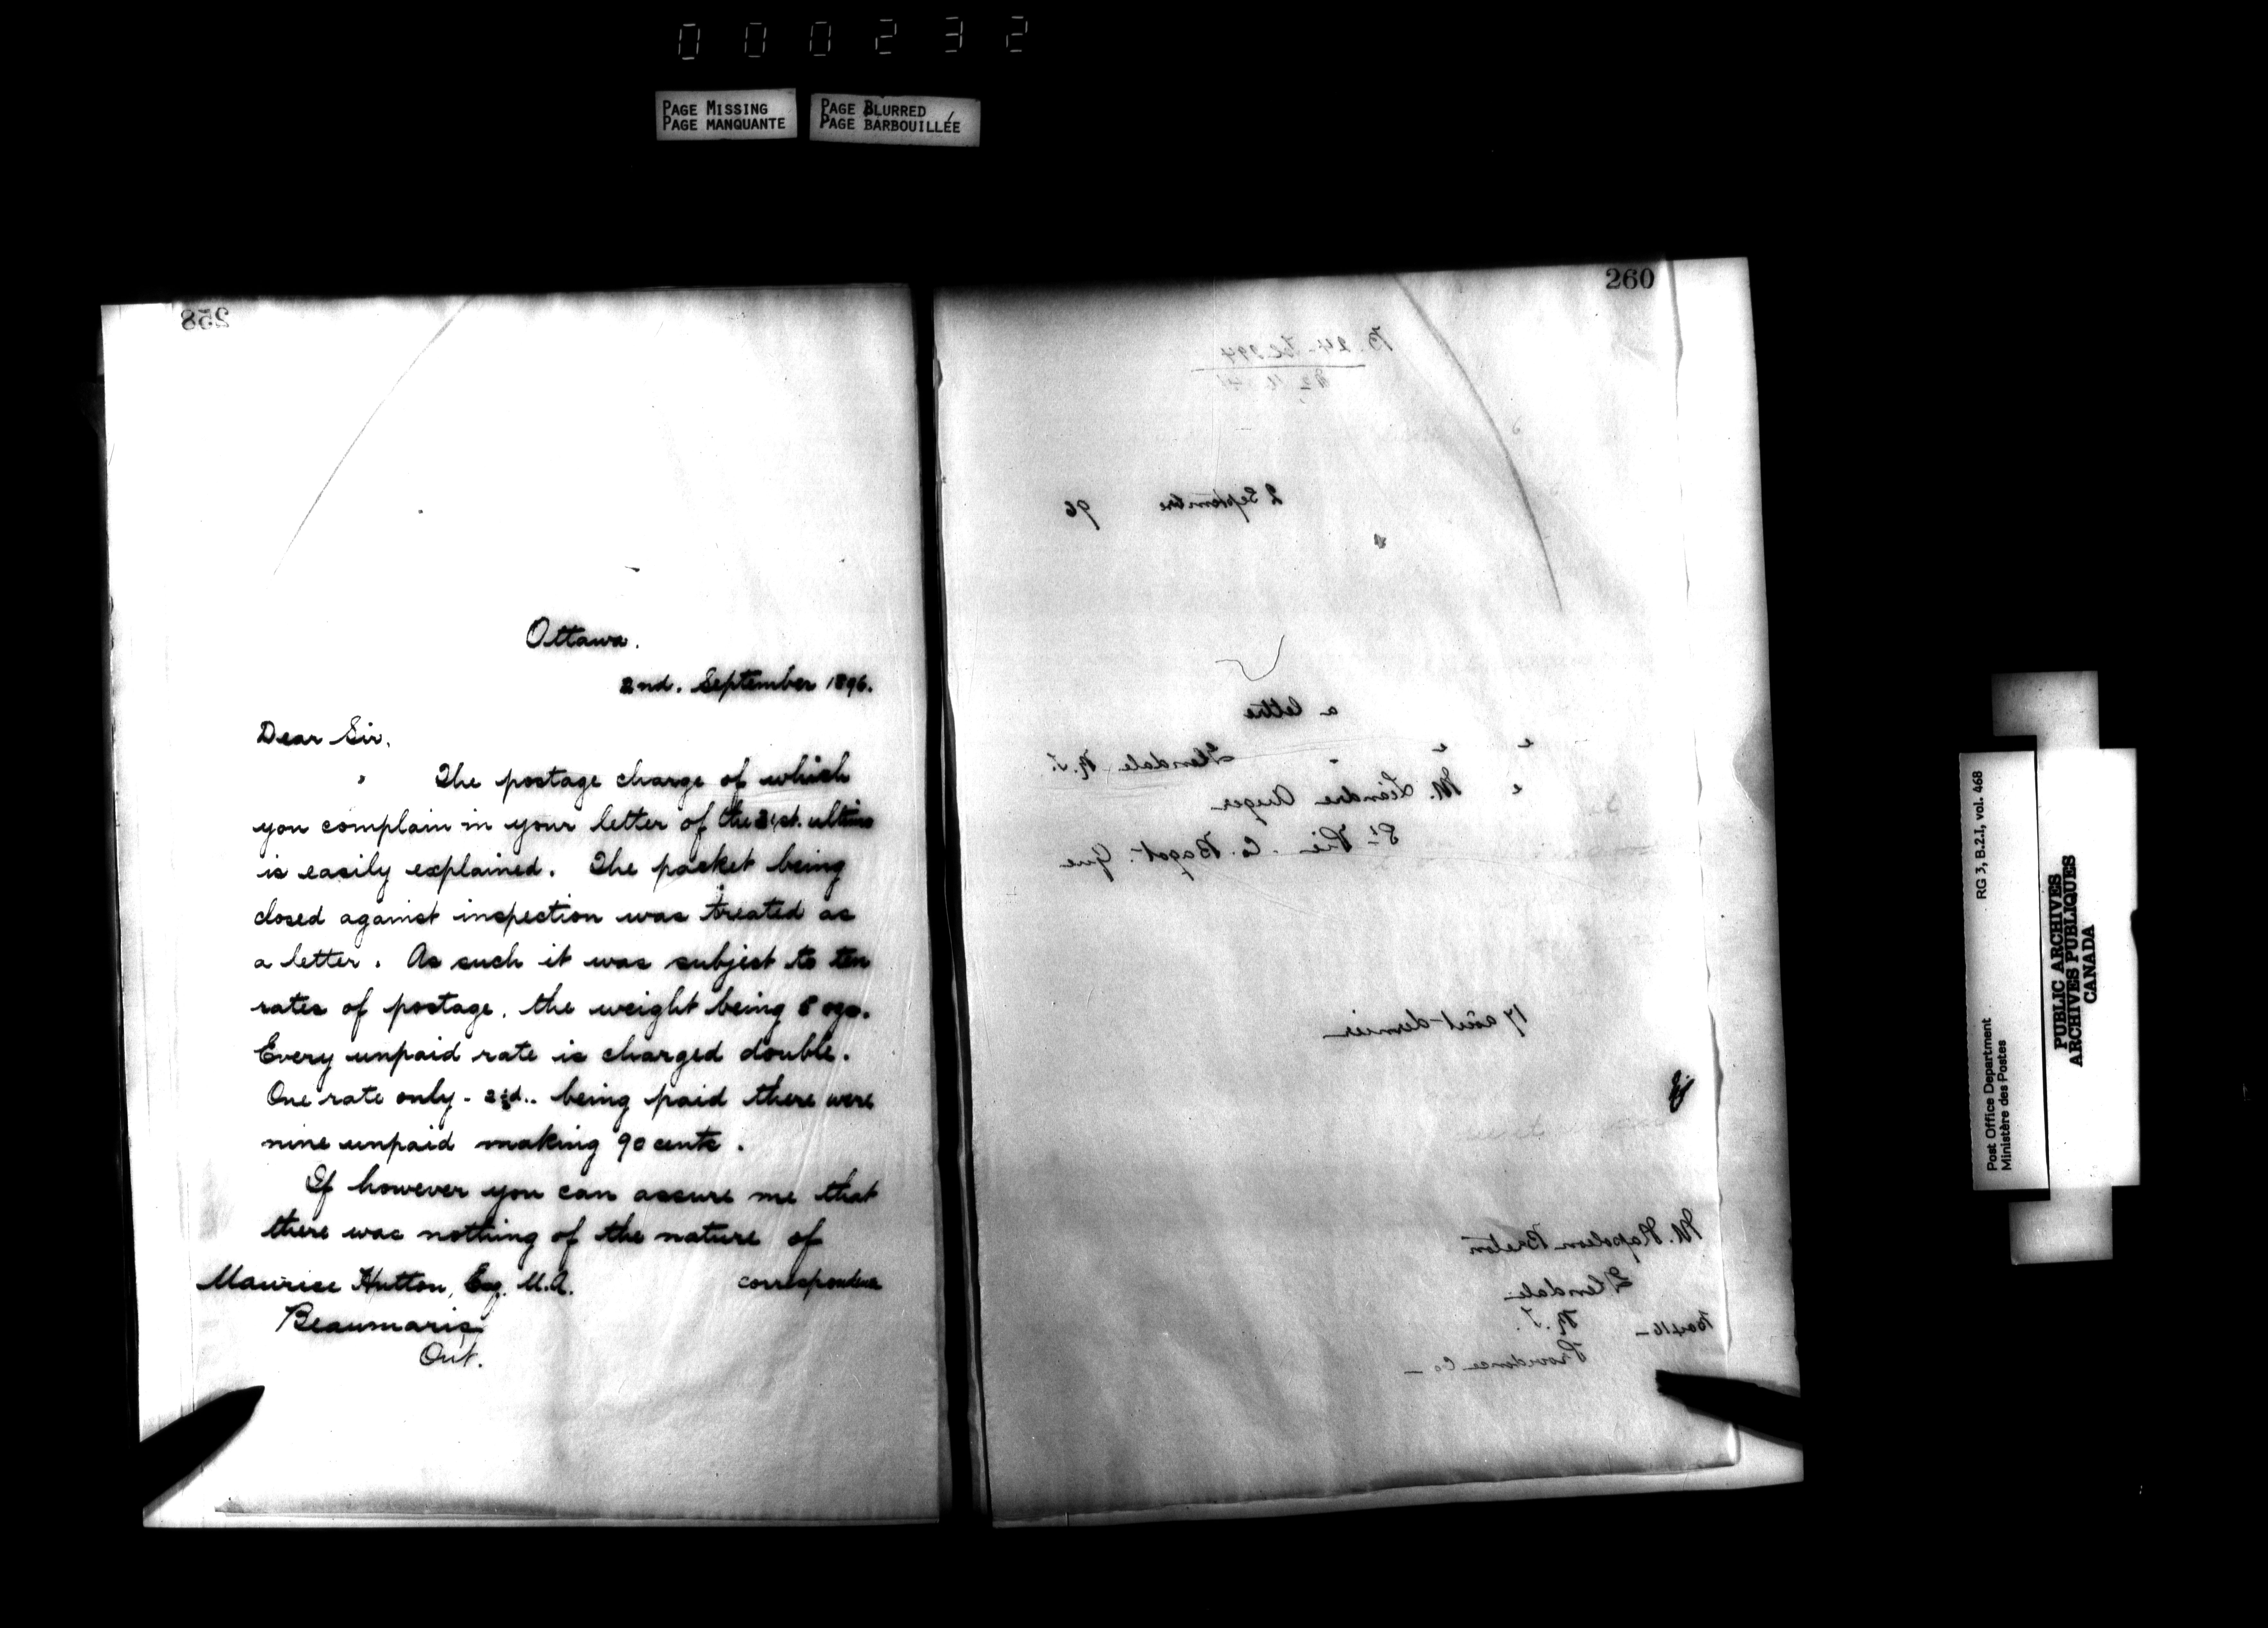 000232
PAGE MISSING
PAGE MANQUANTE
PAGE BLURRED
PAGE BARBOUILLÉE
258
Ottawa.
2nd. September 1896.
Dear Sir,
The postage charge of which
you complain in your letter of the 31st. ultimo
is easily explained. The packet being
closed against inspection was treated as
a letter. As such it was subject to ten
rates of postage, the weight being 8 ozs.
Every unpaid rate is charged double.
One rate only - 2½d.. being paid there were
nine unpaid making 90 cents.
If however you can assure me that
there was nothing of the nature of
correspondence
Maurice Hutton, Esq. M.A.
Beaumaris
Ont.
260
2 Septembre 96
a lettre
Glendale R.I.
M. Léandre Auger
St Pie. Co. Bagot. Que
17 août dernier
M. Napoleon Breton
Glendale
R.I.
Box 416
Providence Co
RG 3, B.2.I, vol. 468
Post Office Department
Ministère des Postes
PUBLIC ARCHIVES
ARCHIVES PUBLIQUES
CANADA